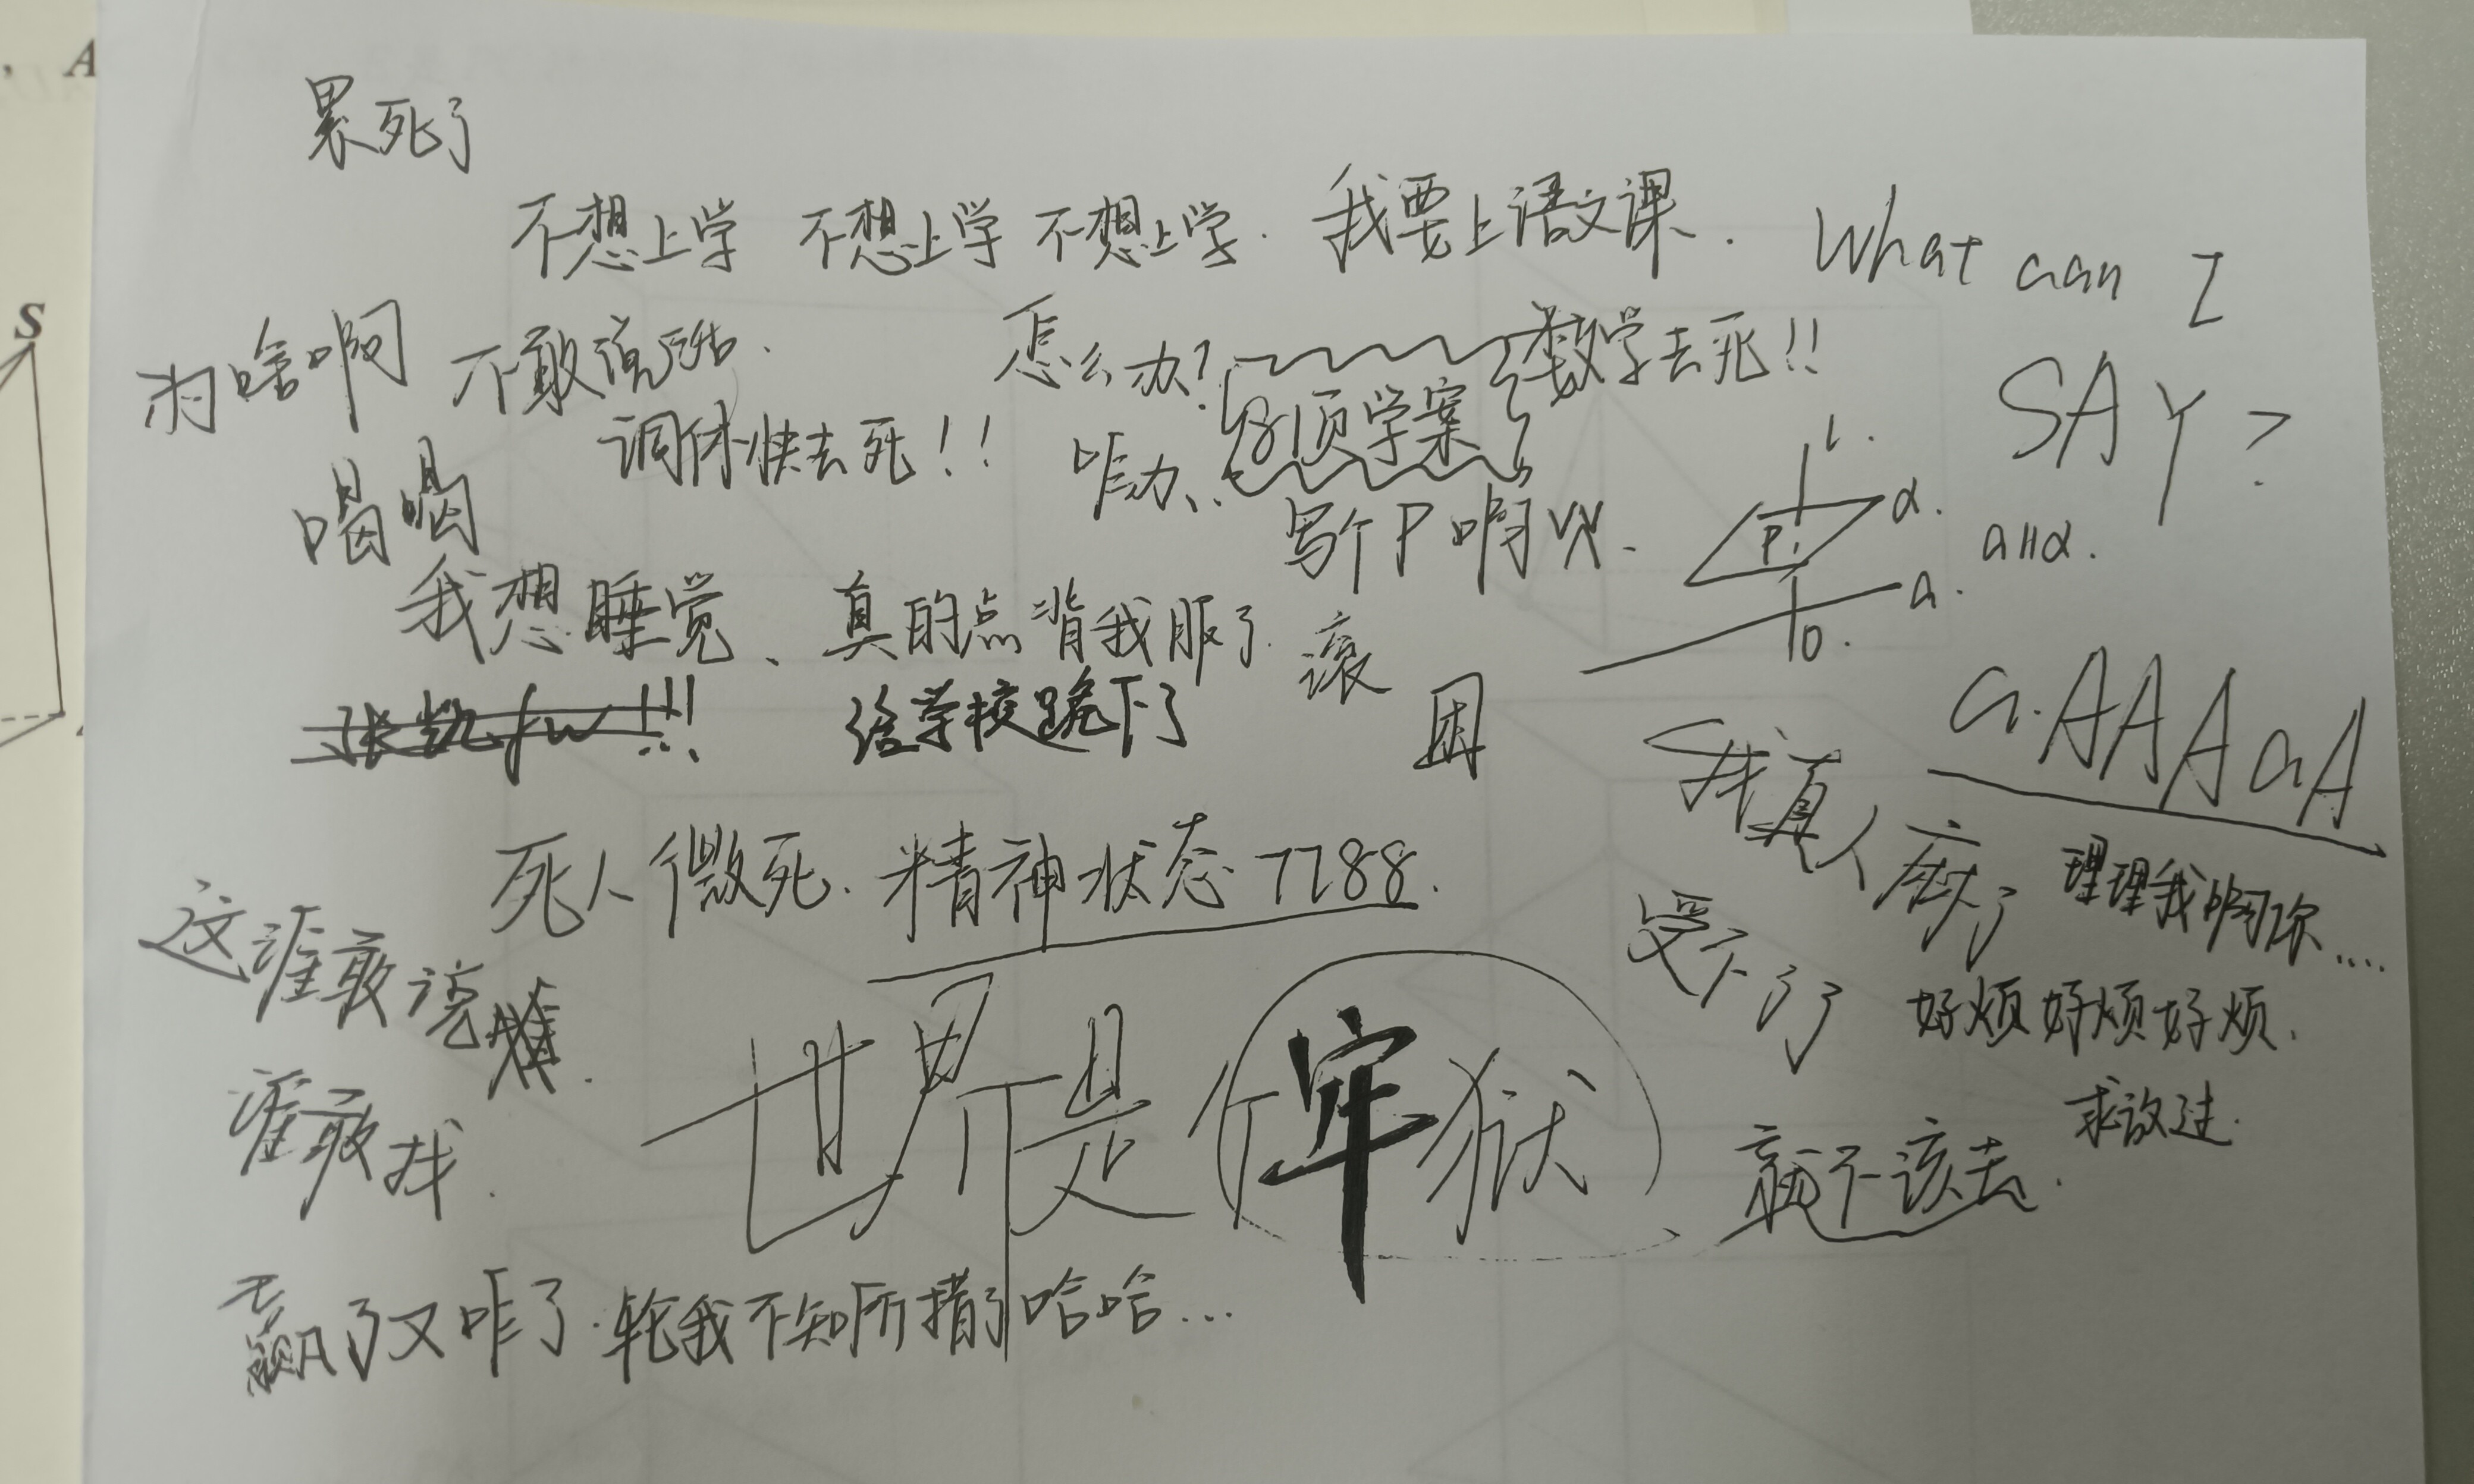 , A
S
累死了
不想上学 不想上学 不想上学. 我要上语文课. What can I
SAY?
为啥啊 不敢说话. 怎么办? 数学去死!!
调休快去死!! 咋办、. 8顶学案
喝喝 写个P啊
l. α. P. a. b. a∥α.
我想睡觉、真的点背我服了. 滚
给学校跪下了 困
a.AAAaA
我真人麻了 理理我啊你....
死人微死. 精神状态7788.
受不了了 好烦好烦好烦.
这谁敢说难.
世界是个牢狱
谁敢找.
就不该去. 求放过.
赢了又咋了. 轮我不知所措了哈哈...